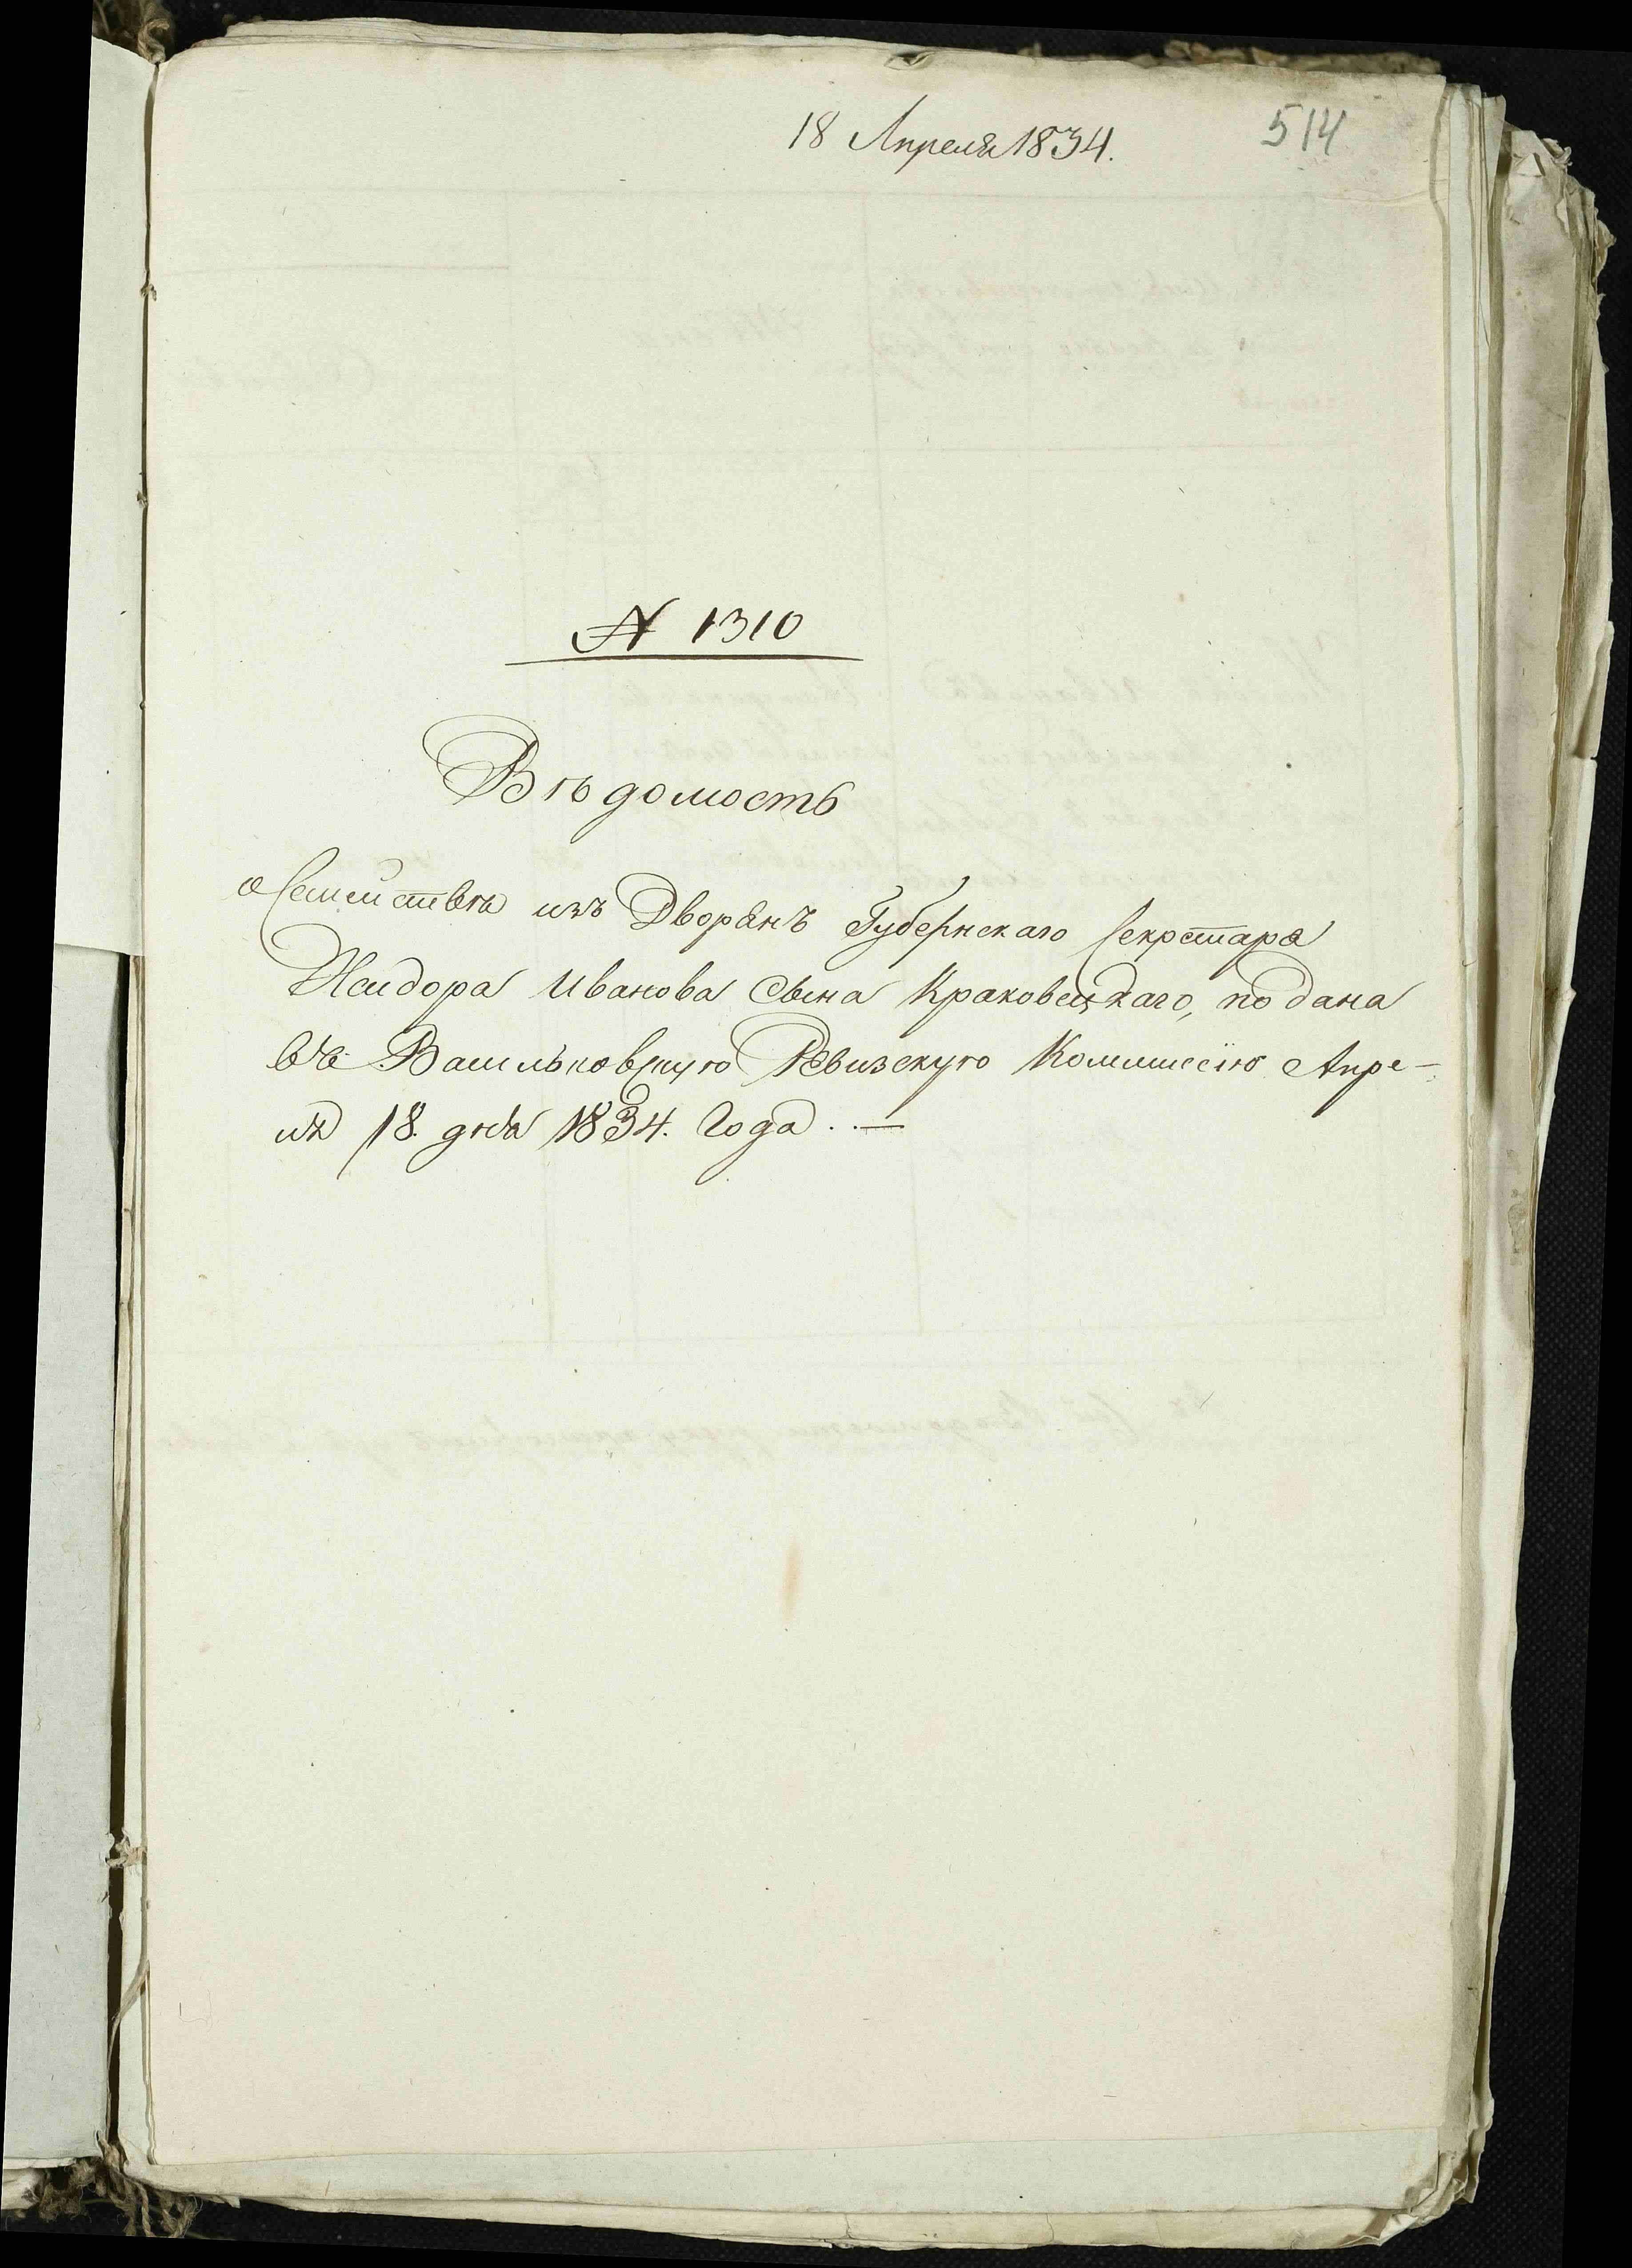 18 Апреля 1834.
514
№ 1310
Вѣдомость
о Семействѣ изъ Дворянъ Губернскаго Секретаря
Исидора Иванова Сына Краковецкаго, подана
въ Васильковскую Ревизскую Коммиссію Апре-
ля 18. дня 1834. Года . . —